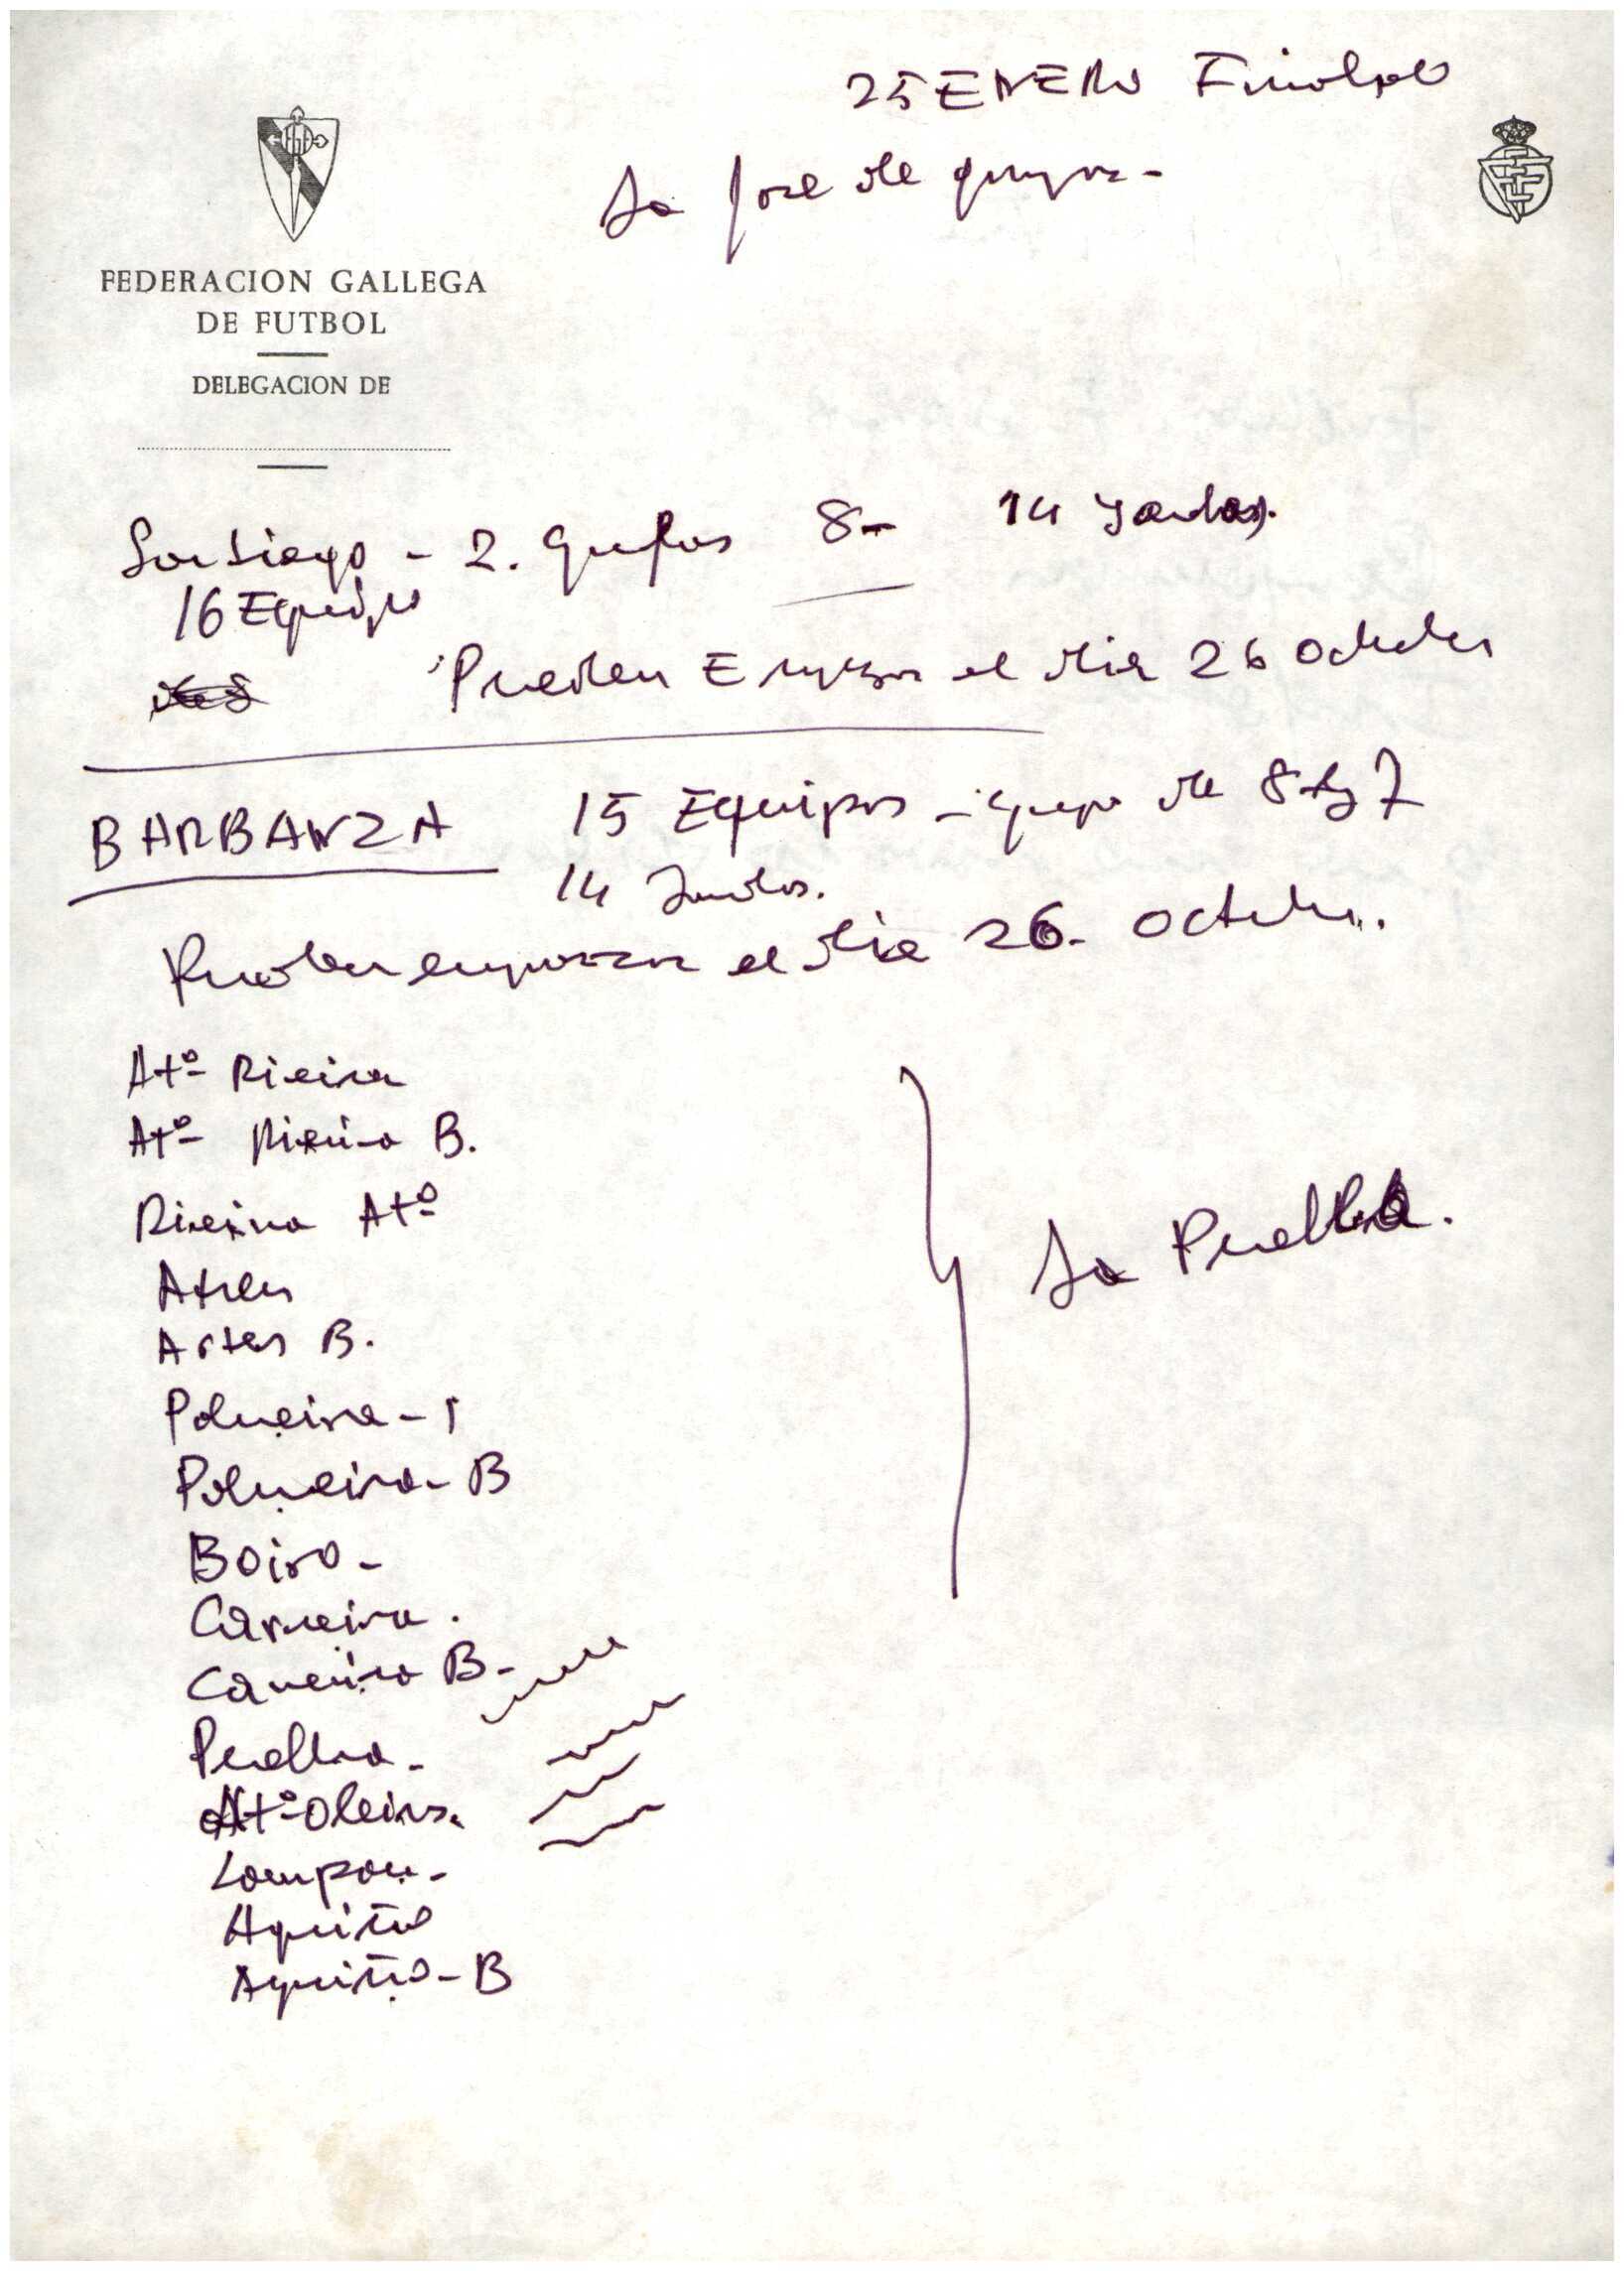 25 ENERO Finalizado
La fase de grupos -
FEDERACION GALLEGA
DE FUTBOL
DELEGACION DE
Santiago - 2. grupos 8 - 14 Jornadas.
16 Equipos
Pueden Empezar el dia 26 Octubre
BARBANZA 15 Equipos - grupo de 8 y 7
14 Jornadas.
Pueden empezar el dia 26. Octubre.
Atº Riveira
Atº Riveira B.
Riveira Atº
Artes
Artes B.
Palmeira - 1
Palmeira - B
Boiro -
Carreira.
Carreira B -
Puebla -
Atº Oleiros.
Lampon -
Aguiño
Aguiño - B
La Puebla.